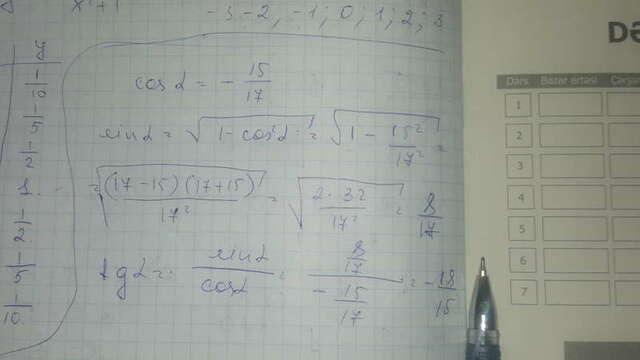 x²+1
-3 -2, -1; 0; 1; 2; 3
y
1/10
1/5
1/2
1
1/2
1/5
1/10
cos α = - 15/17
sin α = √(1 - cos²α) = √(1 - 15²/17²) =
= √((17-15)(17+15)/17²) = √(2·32/17²) = 8/17
tg α = sin α/cos α = (8/17)/(-15/17) = - 18/15
Də
Dərs Bazar ertəsi Çərşən
1
2
3
4
5
6
7